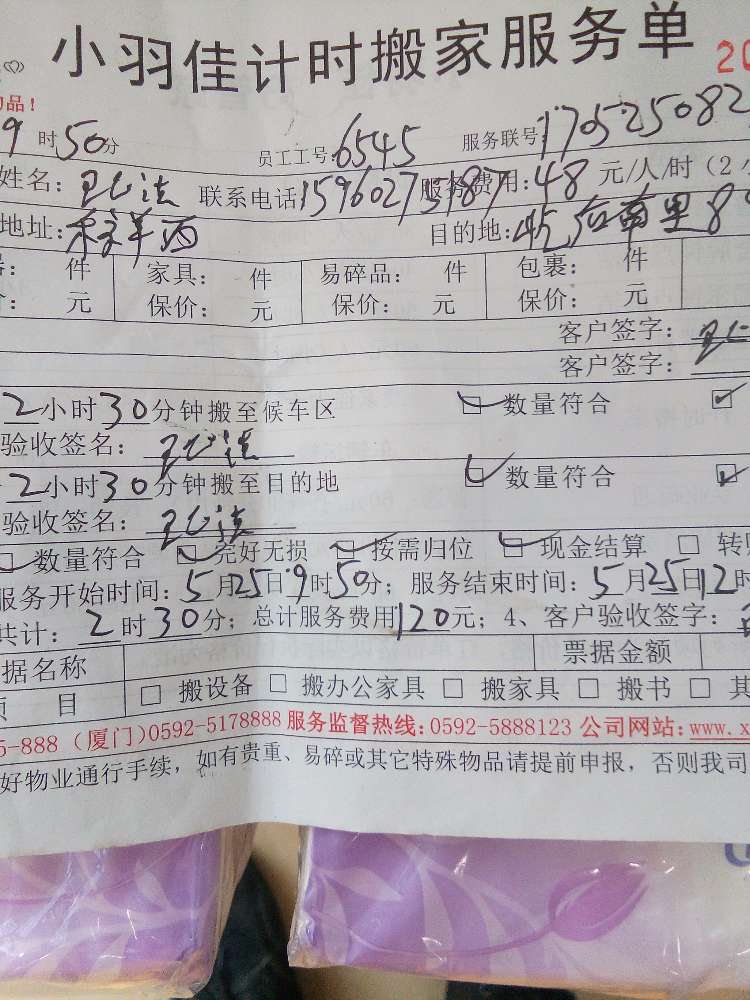 小羽佳计时搬家服务单
20
品！
9时50分 员工工号6545 服务联号170525082
姓名： 联系电话15960275187 服务费用：48元/人/时（2小
地址： 目的地： 后南里89
件 家具： 件 易碎品： 件 包裹： 件
元 保价： 元 保价： 元 保价： 元
客户签字：
客户签字：
2小时30分钟搬至候车区 数量符合
验收签名：
2小时30分钟搬至目的地 数量符合
验收签名：
数量符合 完好无损 按需归位 现金结算 转
服务开始时间：5月25日9时50分；服务结束时间：5月25日12时
共计：2时30分；总计服务费用120元；4、客户验收签字：
据名称 票据金额
项 目 搬设备 搬办公家具 搬家具 搬书 其
5-888（厦门）0592-5178888 服务监督热线：0592-5888123 公司网站：www.x
好物业通行手续，如有贵重、易碎或其它特殊物品请提前申报，否则我司